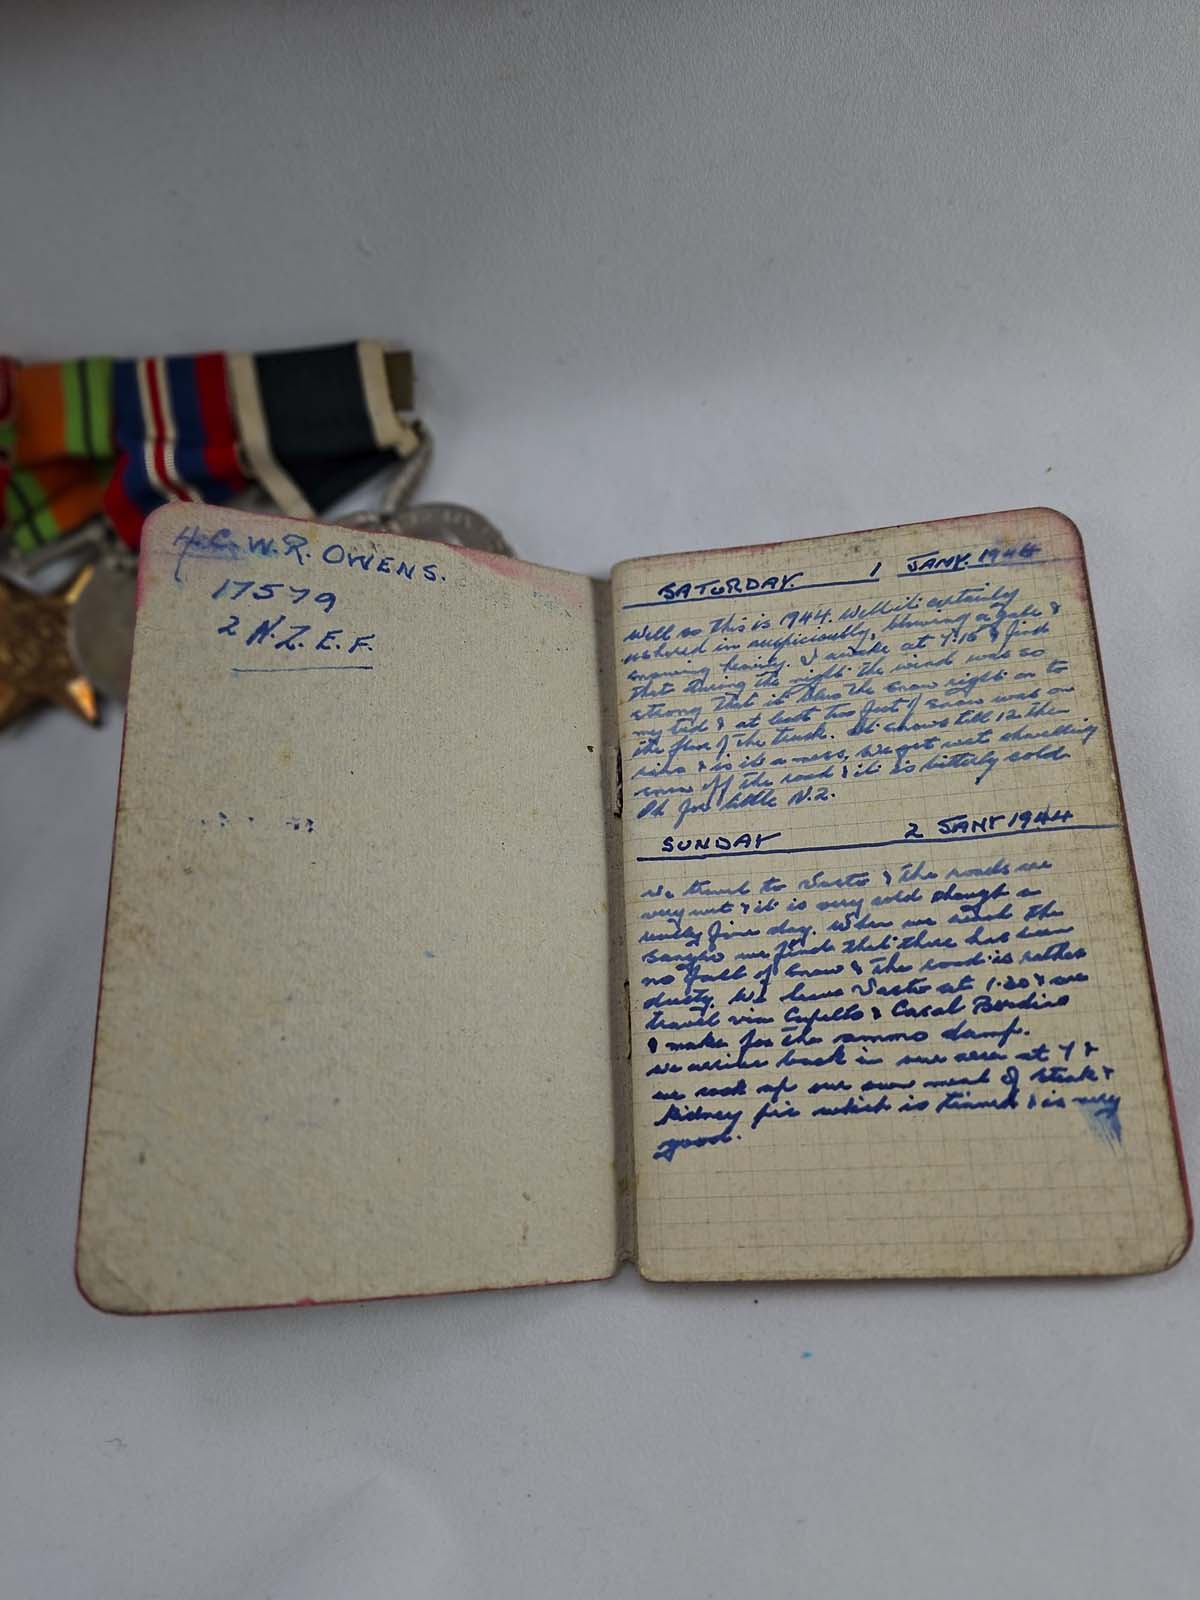 H.C. W.R. OWENS.
17579
2 N.Z.E.F.
SATURDAY. 1 JANY. 1944
Well so this is 1944. Well it certainly
ushered in auspiciously, blowing a gale &
snowing heavily. I awoke at 7.15 & find
that during the night the wind was so
strong that it blew the snow right on to
my bed & at least two feet of snow was on
the floor of the truck. It snows till 12 then
rains & is it a mess. We get wet shovelling
snow off the road & it is bitterly cold
Oh for little N.Z.
SUNDAY 2 JANY 1944
We travel to Vasto & the roads are
very wet & it is very cold though a
really fine day. When we reach the
Sangro we find that there has been
no fall of snow & the road is rather
dusty. We leave Vasto at 1.30 & we
travel via Cupello & Casal Bordino
& make for the ammo dump.
We arrive back in our area at 7 &
we cook up our own meal of steak &
kidney pie which is tinned & is very
good.